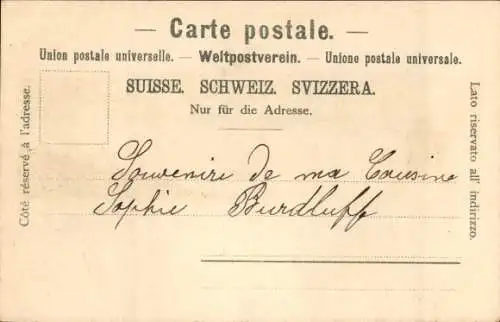 — Carte postale. —
Union postale universelle. — Weltpostverein. — Unione postale universale.
SUISSE. SCHWEIZ. SVIZZERA.
Nur für die Adresse.
Côté réservé à l'adresse.
Lato riservato all' indirizzo.
Souvenire de ma Cousine
Sophie Burdluff